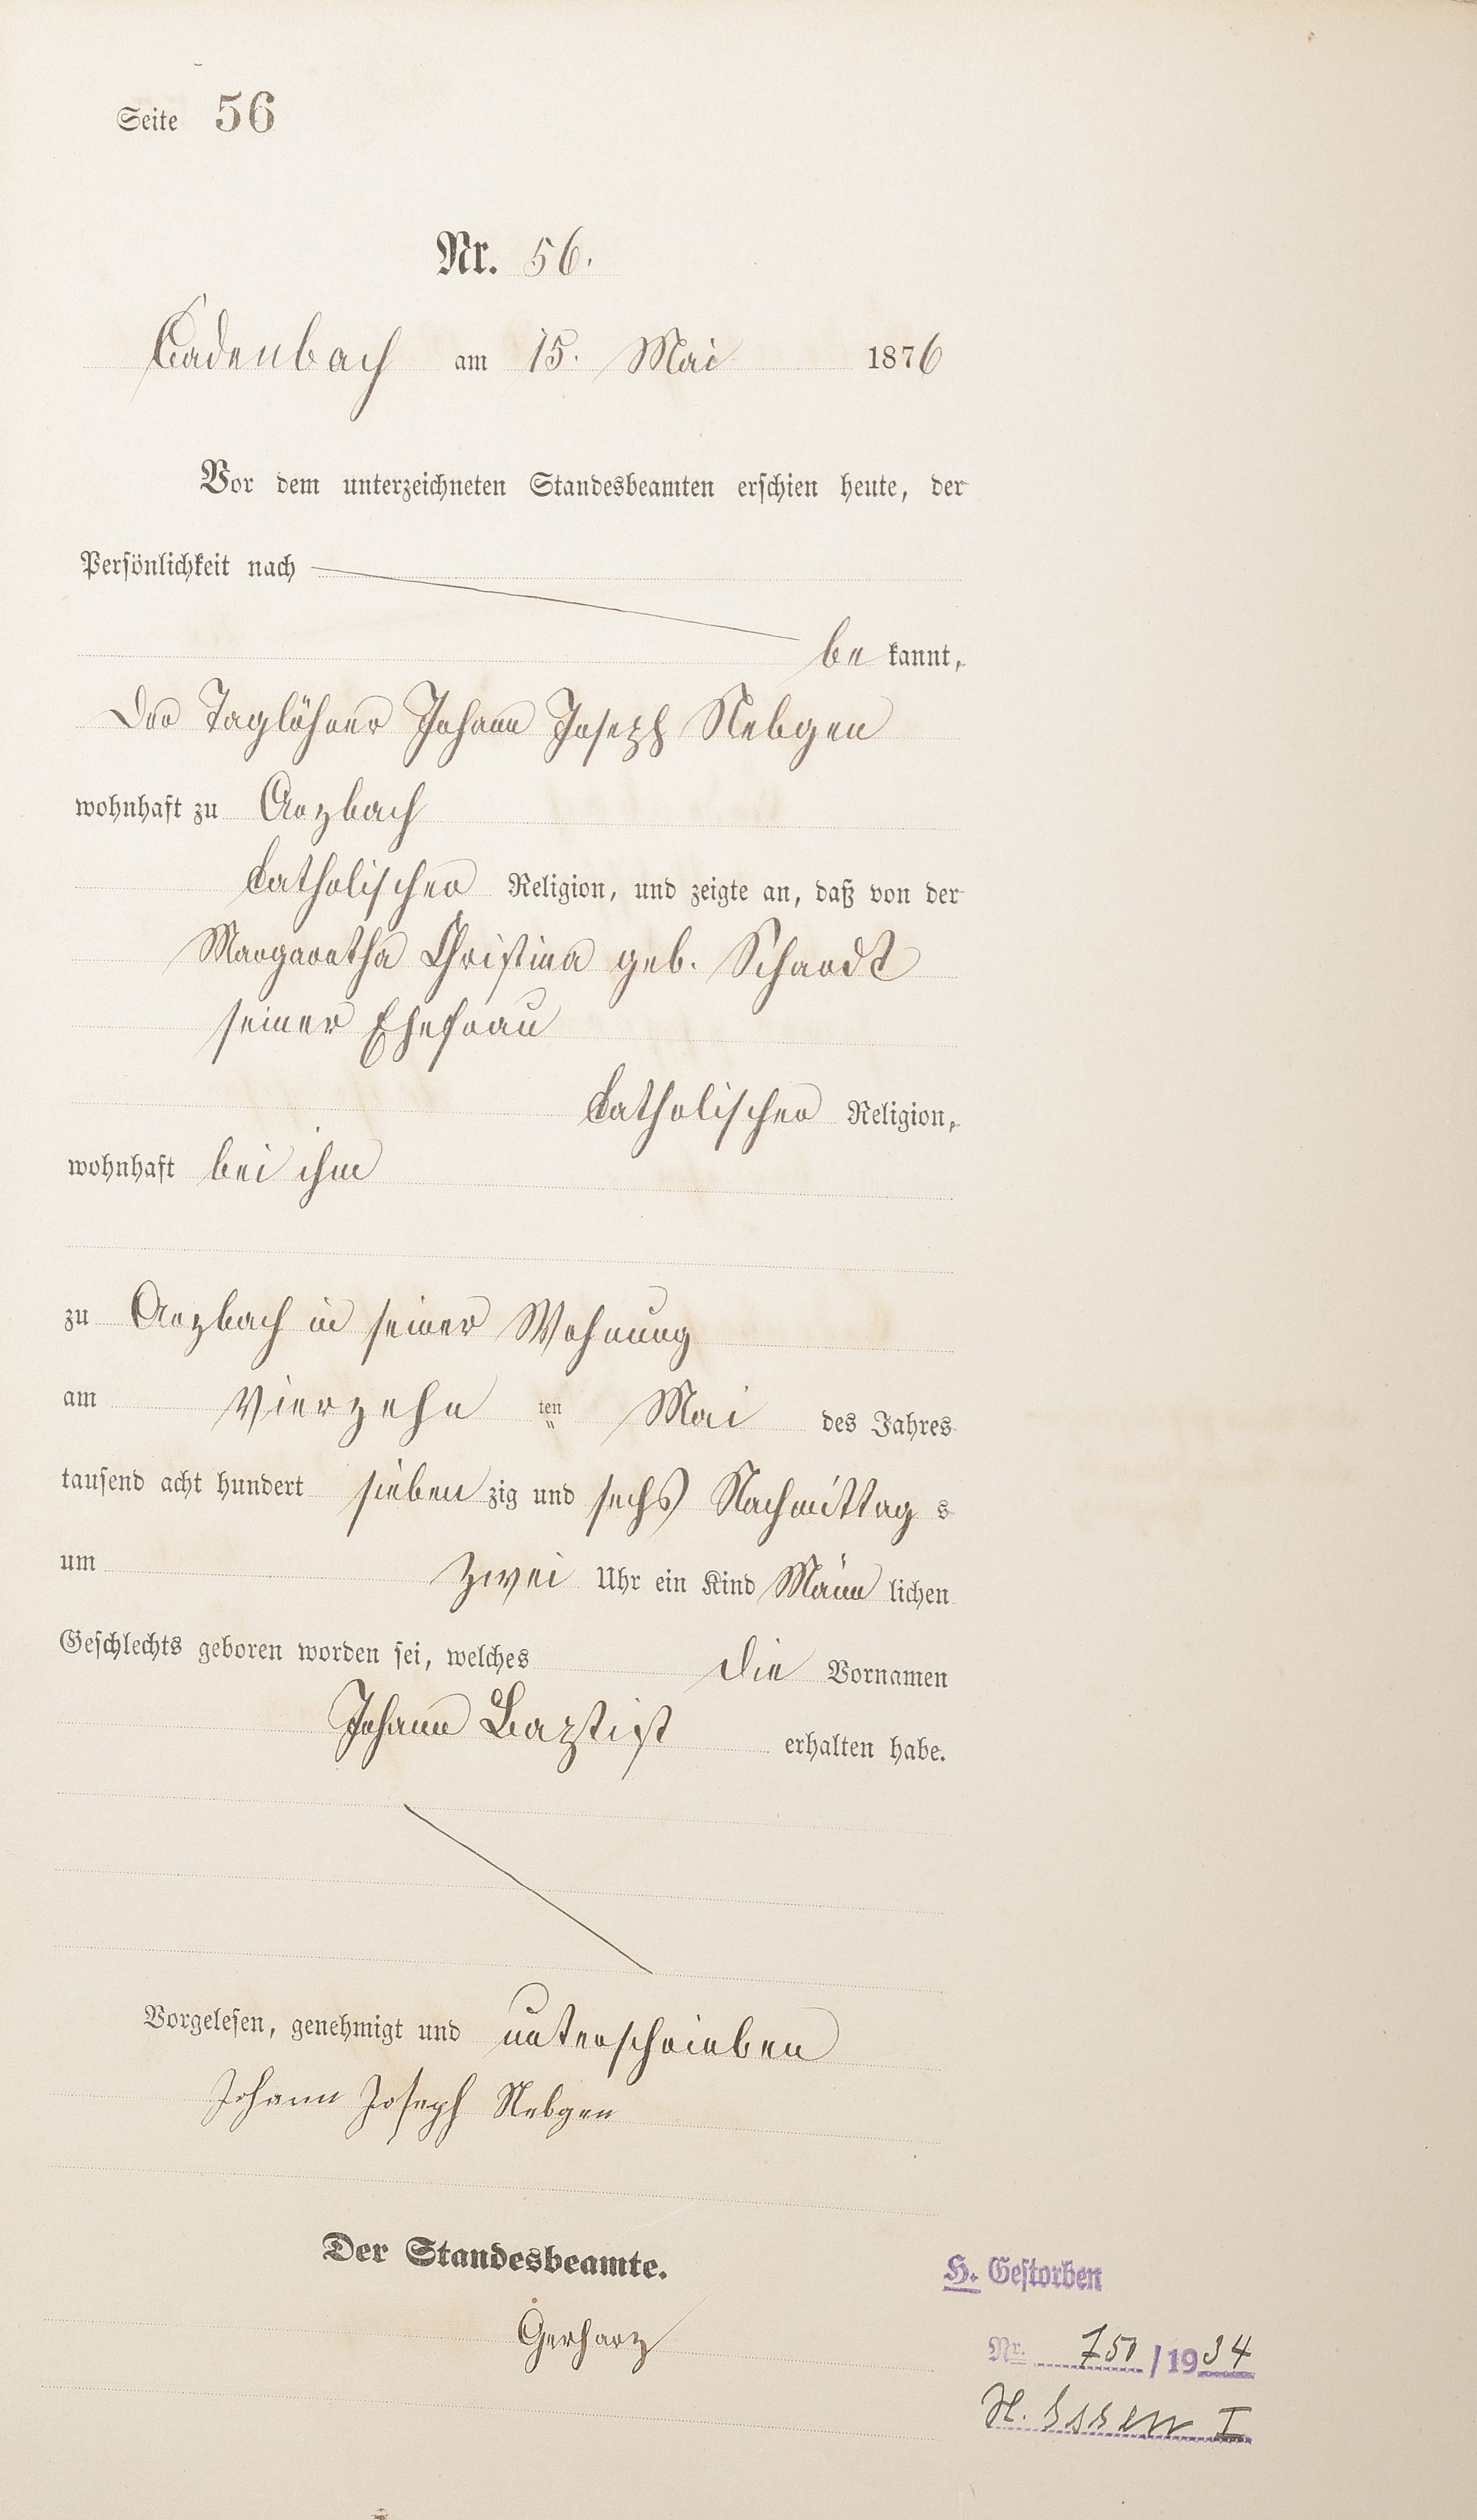 Seite 56
Nr. 56.
Cadenbach am 15. Mai 1876
Vor dem unterzeichneten Standesbeamten erschien heute, der
Persönlichkeit nach
be kannt,
der Taglöhner Johann Joseph Nebgen
wohnhaft zu Arzbach
katholischer Religion, und zeigte an, daß von der
Margaretha Christina geb. Schardt
seiner Ehefrau
katholischer Religion,
wohnhaft bei ihm
zu Arzbach in seiner Wohnung
am vierzehn ten Mai des Jahres
tausend acht hundert sieben zig und sechs Nachmittag s
um zwei Uhr ein Kind Männ lichen
Geschlechts geboren worden sei, welches die Vornamen
Johann Baptist erhalten habe.
Vorgelesen, genehmigt und unterschrieben
Johann Joseph Nebgen
Der Standesbeamte.
Gerharz
H. Gestorben
Nr. 750 / 1934
St. Essen I